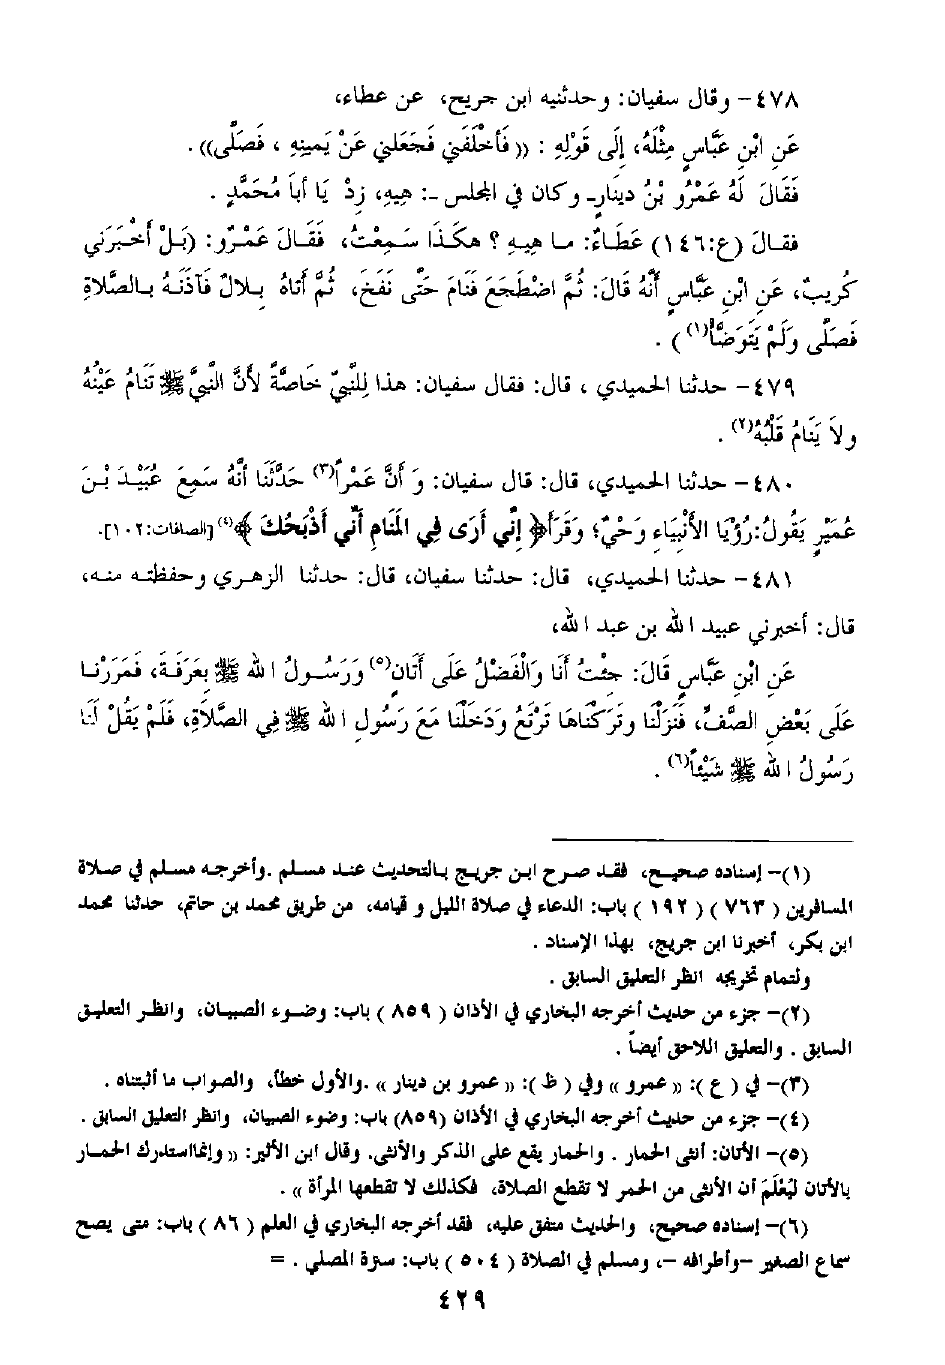 ٤٧٨- وقال سفيان: وحدثنيه ابن جريح، عن عطاء،
عَنِ ابْنِ عَبَّاسٍ مِثْلَهُ، إِلَى قَوْلِهِ : (( فَأَخْلَفَنِي فَجَعَلَنِي عَنْ يَمِينِهِ ، فَصَلَّى)) .
فَقَالَ لَهُ عَمْرُو بْنُ دينَارٍ- وكان في المجلس -: هِيهِ، زِدْ يَا أَبَا مُحَمَّدٍ .
فقَالَ (ع:١٤٦) عَطَاءٌ: ما هِيهِ ؟ هكَذَا سَمِعْتُ، فَقَالَ عَمْرٌو: (بَلْ أَخْبَرَنِي
كُرِيبٌ، عَنِ ابْنِ عَبَّاسٍ أَنَّهُ قَالَ: ثُمَّ اضْطَجَعَ فَنَامَ حَتَّى نَفَخَ، ثُمَّ أَتَاهُ بِلالٌ فَآذَنَهُ بالصَّلاةِ
فَصَلَّى وَلَمْ يَتَوَضَّأْ(١)) .
٤٧٩- حدثنا الحميدي ، قال: فقال سفيان: هذا لِلنَّبِيِّ خَاصَّةً لأَنَّ النَّبِيَّ ﷺ تَنَامُ عَيْنُهُ
ولاَ يَنَامُ قَلْبُهُ(٢) .
٤٨٠- حدثنا الحميدي، قال: قال سفيان: وَ أَنَّ عَمْراً(٣) حَدَّثَنَا أنَّهُ سَمِعَ عُبَيْدَ بْنَ
عُمَيْرٍ يَقُولُ:رُؤْيَا الأَنْبِيَاءِ وَحْيٌ؛ وَقَرَأَ﴿ إِنِّي أَرَى فِي المَنَامِ أَنِّي أَذْبَحُكَ ﴾(٤) [الصافات:١٠٢].
٤٨١- حدثنا الحميدي، قال: حدثنا سفيان، قال: حدثنا الزهري وحفظته منه،
قال: أخبرني عبيد الله بن عبد الله،
عَنِ ابْنِ عَبَّاسٍ قَالَ: جِئْتُ أَنَا وَالْفَضْلُ عَلَى أَتَانٍ(٥) وَرَسُولُ الله ﷺ بِعَرَفَةَ، فَمَرَرْنا
عَلَى بَعْضِ الصَّفِّ، فَنَزَلْنَا وتَرَكْنَاهَا تَرْتَعُ وَدَخَلْنَا مَعَ رَسُولِ الله ﷺ فِي الصَّلاَةِ، فَلَمْ يَقُلْ لَنَا
رَسُولُ الله ﷺ شَيْئاً(٦) .
(١)- إسناده صحيح، فقد صرح ابن جريج بالتحديث عند مسلم .وأخرجه مسلم في صلاة
المسافرين ( ٧٦٣ ) ( ١٩٢ ) باب: الدعاء في صلاة الليل و قيامه، من طريق محمد بن حاتم، حدثنا محمد
ابن بكر، أخبرنا ابن جريج، بهذا الإسناد .
ولتمام تخريجه انظر التعليق السابق .
(٢)- جزء من حديث أخرجه البخاري في الأذان ( ٨٥٩ ) باب: وضوء الصبيان، وانظر التعليق
السابق . والتعليق اللاحق أيضاً .
(٣)- في ( ع ): (( عمرو )) وفي ( ظ ): (( عمرو بن دينار )) .والأول خطأ، والصواب ما أثبتناه .
(٤)- جزء من حديث أخرجه البخاري في الأذان (٨٥٩) باب: وضوء الصبيان، وانظر التعليق السابق .
(٥)- الأتان: أنثى الحمار . والحمار يقع على الذكر والأنثى. وقال ابن الأثير: (( وإنمااستدرك الحمار
بالأتان لِيُعْلَمَ أن الأنثى من الحمر لا تقطع الصلاة، فكذلك لا تقطعها المرأة )) .
(٦)- إسناده صحيح، والحديث متفق عليه، فقد أخرجه البخاري في العلم ( ٨٦ ) باب: متى يصح
سماع الصغير -وأطرافه -، ومسلم في الصلاة ( ٥٠٤ ) باب: سترة المصلي . =
٤٢٩